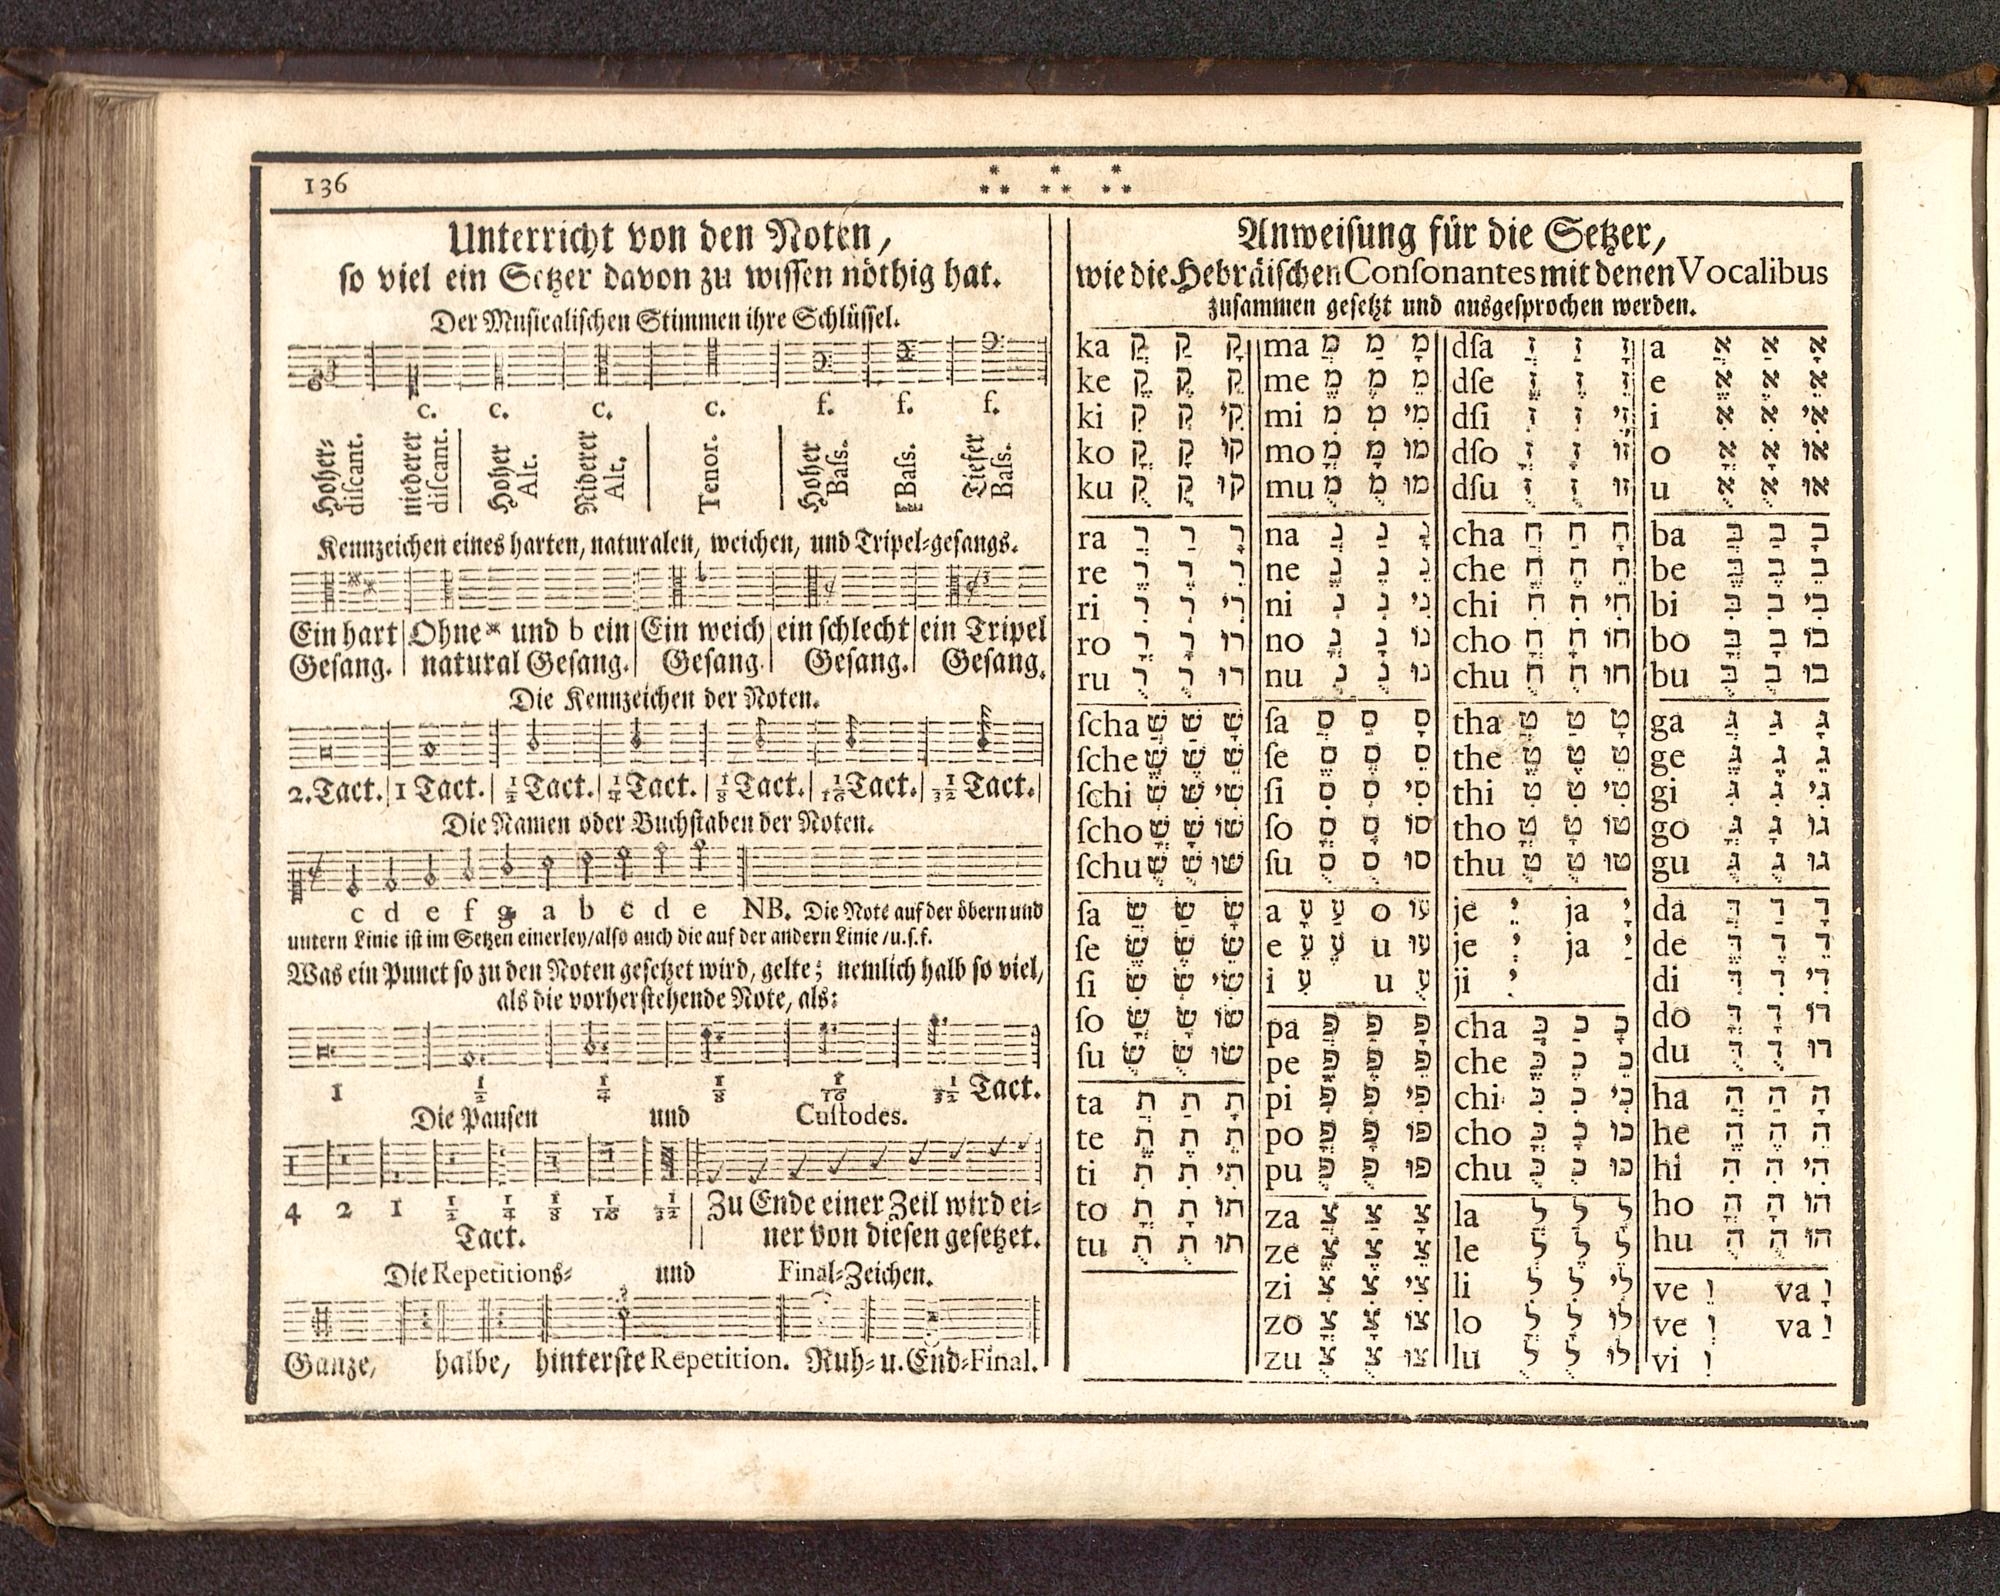 136
Unterricht von den Noten,
so viel ein Setzer davon zu wissen nöthig hat.
Der Musicalischen Stimmen ihre Schlüssel.
c. c. c. c. f. f. f.
Hoher-discant.
niederer discant.
Hoher Alt.
Niderer Alt.
Tenor.
Hoher Bass.
Bass.
Tiefer Bass.
Kennzeichen eines harten, naturalen, weichen, und Tripel-gesangs.
Ein hart Ohne * und b ein Ein weich ein schlecht ein Tripel
Gesang. natural Gesang. Gesang. Gesang. Gesang.
Die Kennzeichen der Noten.
2. Tact. 1 Tact. 1/2 Tact. 1/4 Tact. 1/8 Tact. 1/16 Tact. 1/32 Tact.
Die Namen oder Buchstaben der Noten.
c d e f g a b c d e NB. Die Note auf der öbern und
untern Linie ist im Setzen einerley/also auch die auf der andern Linie/u.s.f.
Was ein Punct so zu den Noten gesetzet wird, gelte; nemlich halb so viel,
als die vorherstehende Note, als:
1 1/2 1/4 1/8 1/16 1/32 Tact.
Die Pausen und Custodes.
4 2 1 1/2 1/4 1/8 1/16 1/32 Zu Ende einer Zeil wird ei-
Tact. ner von diesen gesetzet.
Die Repetitions- und Final-Zeichen.
Ganze, halbe, hinterste Repetition. Ruh- u. End-Final.
Anweisung für die Setzer,
wie die Hebräischen Consonantes mit denen Vocalibus
zusammen gesetzt und ausgesprochen werden.
a א א א
e א א א
i אי א א
o או א א
u או א א
ba ב ב ב
be ב ב ב
bi בי ב ב
bo בו ב ב
bu בו ב ב
ga ג ג ג
ge ג ג ג
gi גי ג ג
go גו ג ג
gu גו ג ג
da ד ד ד
de ד ד ד
di די ד ד
do דו ד ד
du דו ד ד
ha ה ה ה
he ה ה ה
hi הי ה ה
ho הו ה ה
hu הו ה ה
ve ו va ו
ve ו va ו
vi ו
dsa ז ז ז
dse ז ז ז
dsi זי ז ז
dso זו ז ז
dsu זו ז ז
cha ח ח ח
che ח ח ח
chi חי ח ח
cho חו ח ח
chu חו ח ח
tha ט ט ט
the ט ט ט
thi טי ט ט
tho טו ט ט
thu טו ט ט
je י ja י
je י ja י
ji י
cha כ כ כ
che כ כ כ
chi כי כ כ
cho כו כ כ
chu כו כ כ
la ל ל ל
le ל ל ל
li לי ל ל
lo לו ל ל
lu לו ל ל
ma מ מ מ
me מ מ מ
mi מי מ מ
mo מו מ מ
mu מו מ מ
na נ נ נ
ne נ נ נ
ni ני נ נ
no נו נ נ
nu נו נ נ
sa ס ס ס
se ס ס ס
si סי ס ס
so סו ס ס
su סו ס ס
a ע ע o עו
e ע ע u עו
i ע u ע
pa פ פ פ
pe פ פ פ
pi פי פ פ
po פו פ פ
pu פו פ פ
za צ צ צ
ze צ צ צ
zi צי צ צ
zo צו צ צ
zu צו צ צ
ka ק ק ק
ke ק ק ק
ki קי ק ק
ko קו ק ק
ku קו ק ק
ra ר ר ר
re ר ר ר
ri רי ר ר
ro רו ר ר
ru רו ר ר
scha שׁ שׁ שׁ
sche שׁ שׁ שׁ
schi שׁי שׁ שׁ
scho שׁו שׁ שׁ
schu שׁו שׁ שׁ
sa שׂ שׂ שׂ
se שׂ שׂ שׂ
si שׂי שׂ שׂ
so שׂו שׂ שׂ
su שׂו שׂ שׂ
ta ת ת ת
te ת ת ת
ti תי ת ת
to תו ת ת
tu תו ת ת